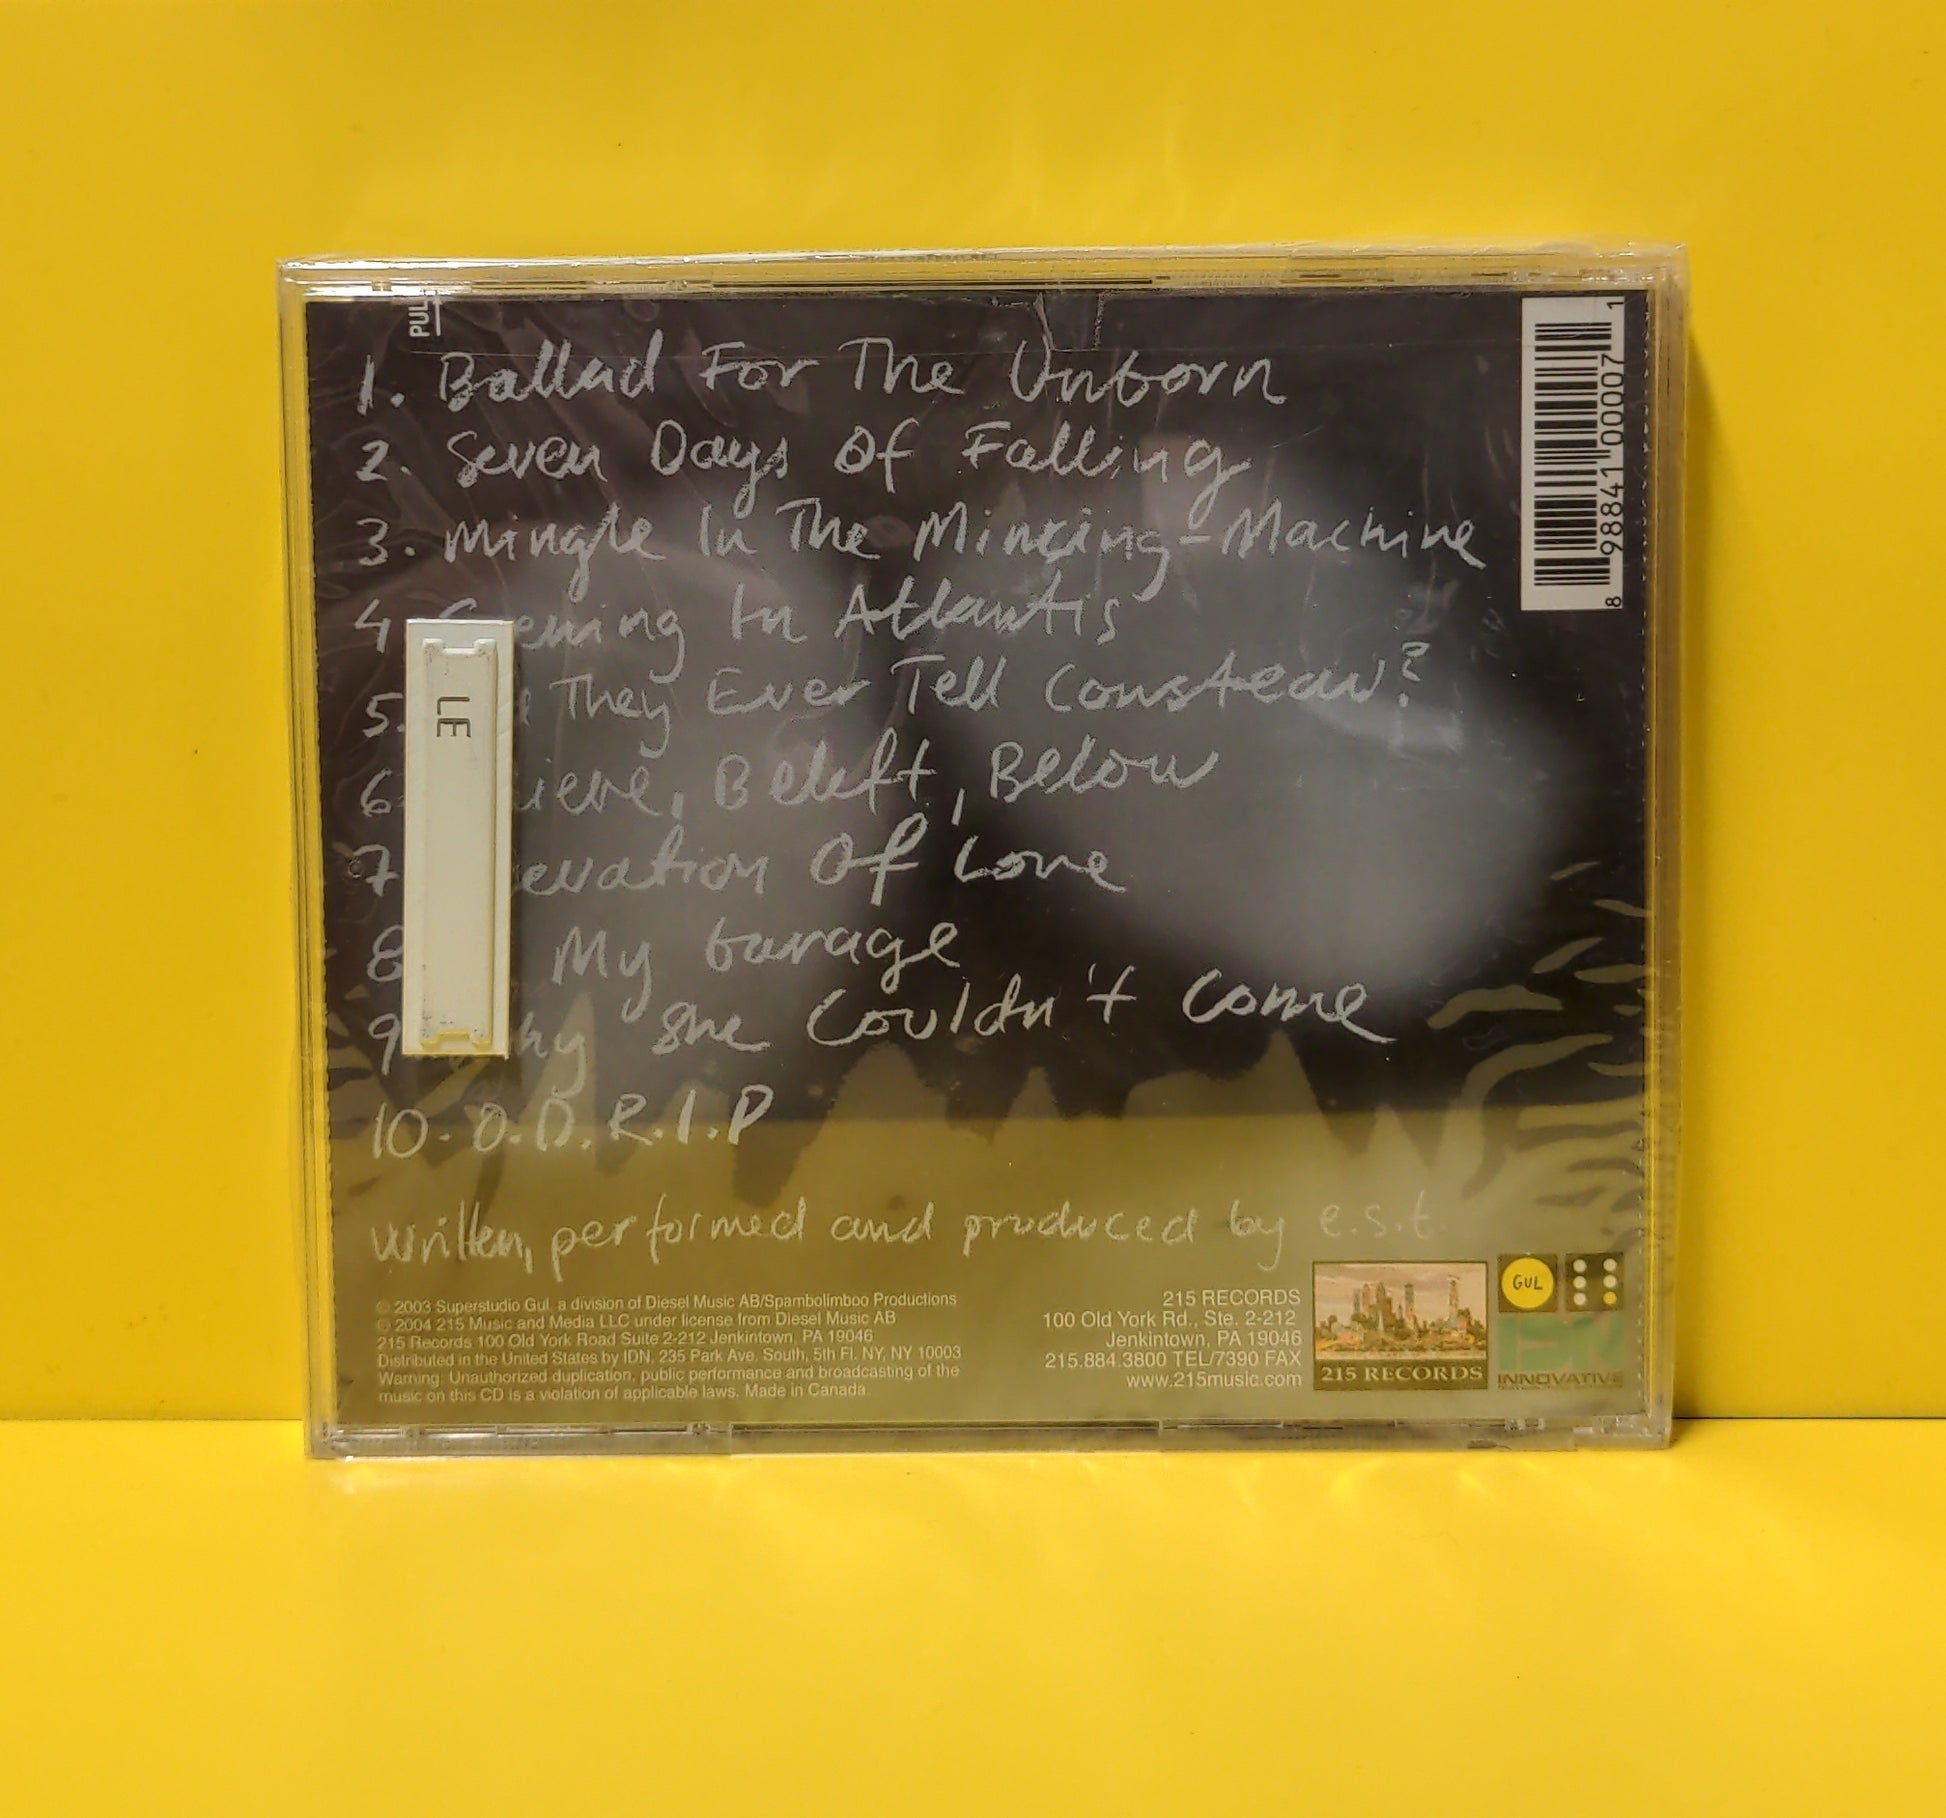 PUL
1. Ballad For The Unborn
2. Seven Days Of Falling
3. Mingle In The Mincing-Machine
4. Evening In Atlantis
5. They Ever Tell Cousteau?
6. lieve, Beleft, Below
7. evation Of Love
8 My Garage
9 hy She Couldn't Come
10. O.D.R.I.P
LE
written, performed and produced by e.s.t.
© 2003 Superstudio Gul, a division of Diesel Music AB/Spambolimboo Productions
© 2004 215 Music and Media LLC under license from Diesel Music AB
215 Records 100 Old York Road Suite 2-212 Jenkintown, PA 19046
Distributed in the United States by IDN, 235 Park Ave. South, 5th Fl. NY, NY 10003
Warning: Unauthorized duplication, public performance and broadcasting of the
music on this CD is a violation of applicable laws. Made in Canada.
215 RECORDS
100 Old York Rd., Ste. 2-212
Jenkintown, PA 19046
215.884.3800 TEL/7390 FAX
www.215music.com
215 RECORDS
GUL
INNOVATIVE
8 98841 00007 1